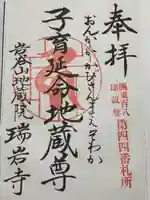 奉拝
関東百八
地蔵尊
第四四番札所
おんかかかびさんまえいそわか
子育延命地蔵尊
岩谷山地蔵院
瑞岩寺